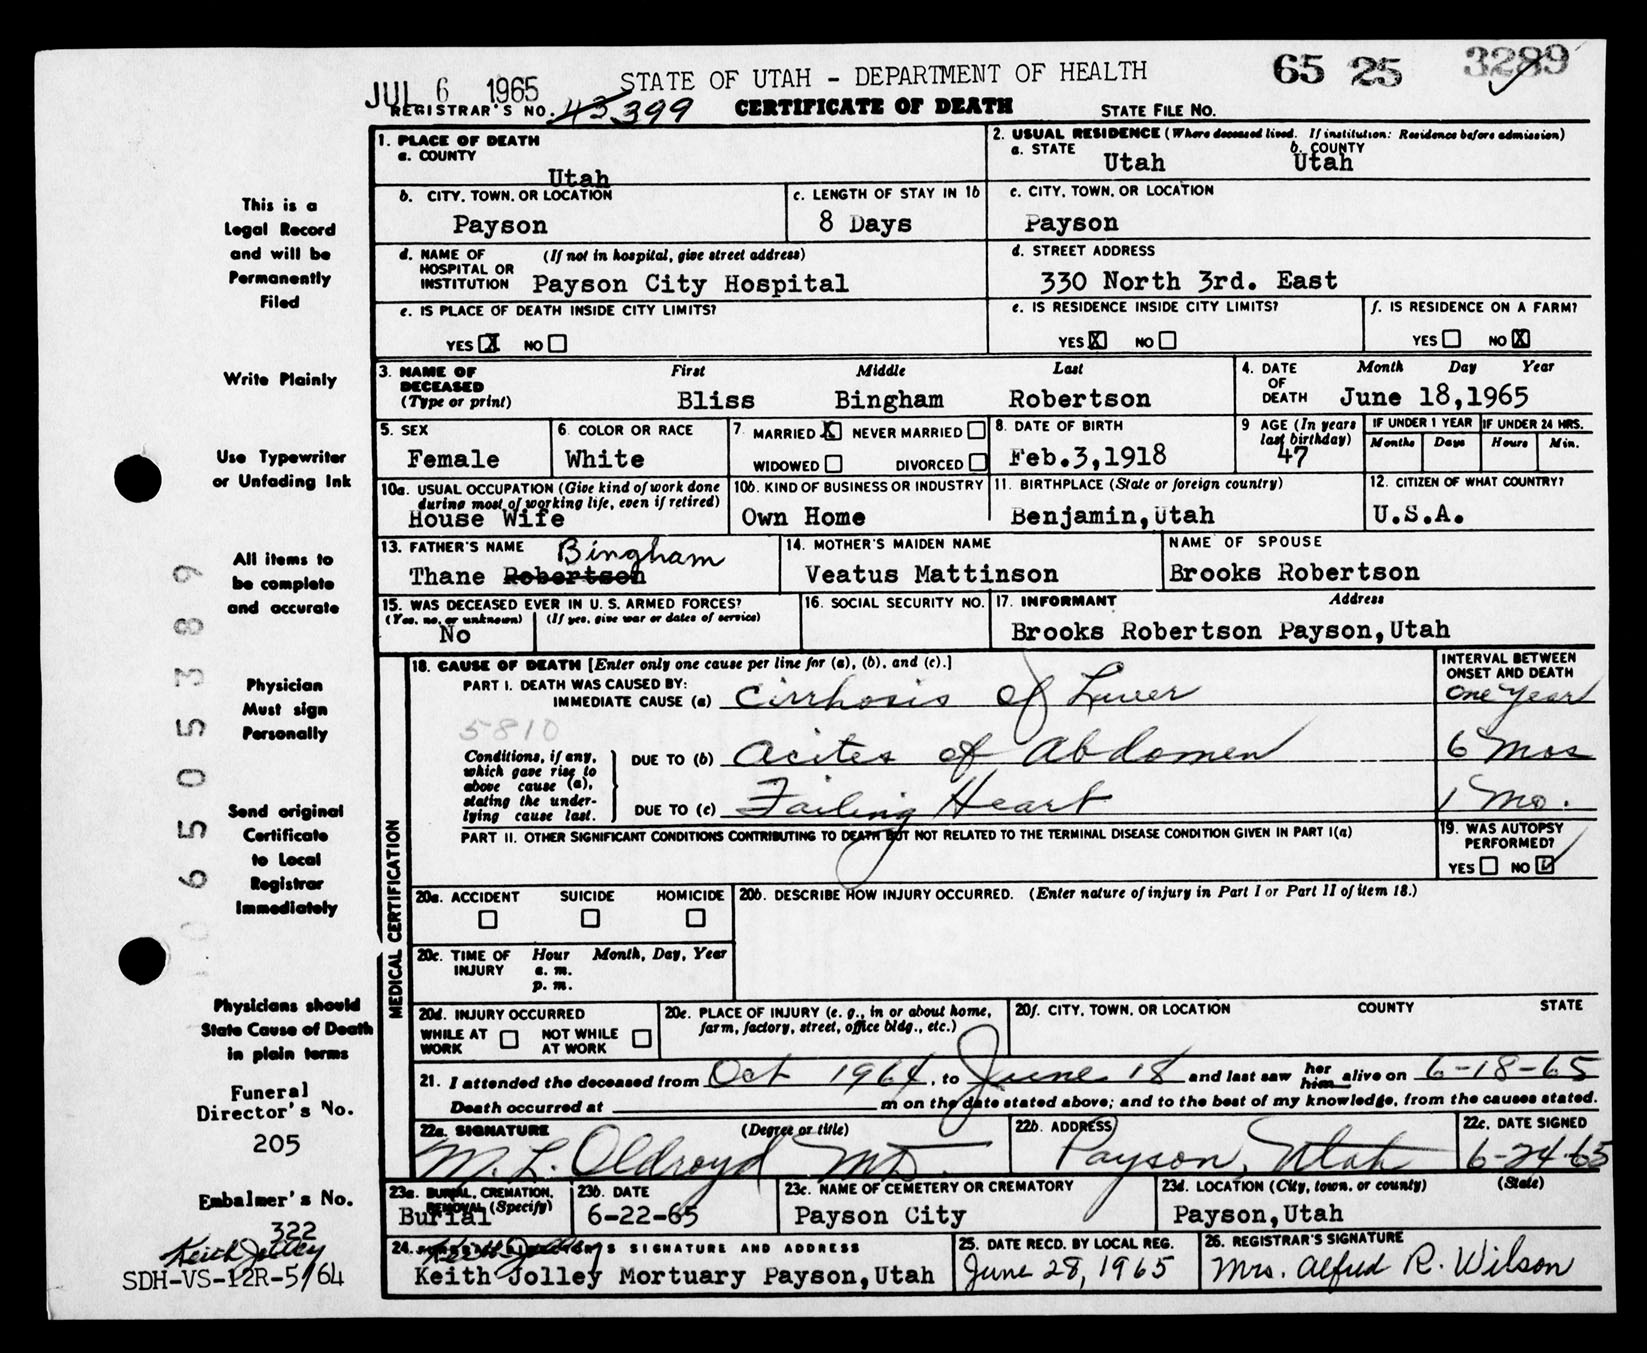 JUL 6 1965
STATE OF UTAH - DEPARTMENT OF HEALTH
65 25 3289
REGISTRAR'S NO. 43 399
CERTIFICATE OF DEATH
STATE FILE NO.
This is a
Legal Record
and will be
Permanently
Filed
Write Plainly
Use Typewriter
or Unfading Ink
All items to
be complete
and accurate
Physician
Must sign
Personally
Send original
Certificate
to Local
Registrar
Immediately
Physicians should
State Cause of Death
in plain terms
Funeral
Director's No.
205
Embalmer's No.
322
Keith Jolley
SDH-VS-12R-5/64
0650 53 89
1. PLACE OF DEATH
a. COUNTY
Utah
2. USUAL RESIDENCE (Where deceased lived. If institution: Residence before admission)
a. STATE
Utah
b. COUNTY
Utah
b. CITY, TOWN, OR LOCATION
Payson
c. LENGTH OF STAY IN 1b
8 Days
c. CITY, TOWN, OR LOCATION
Payson
d. NAME OF HOSPITAL OR INSTITUTION
(If not in hospital, give street address)
Payson City Hospital
d. STREET ADDRESS
330 North 3rd. East
e. IS PLACE OF DEATH INSIDE CITY LIMITS?
YES X NO
e. IS RESIDENCE INSIDE CITY LIMITS?
YES X NO
f. IS RESIDENCE ON A FARM?
YES NO X
3. NAME OF DECEASED (Type or print)
First Middle Last
Bliss Bingham Robertson
4. DATE OF DEATH
Month Day Year
June 18,1965
5. SEX
Female
6. COLOR OR RACE
White
7. MARRIED X NEVER MARRIED
WIDOWED DIVORCED
8. DATE OF BIRTH
Feb.3,1918
9 AGE (In years last birthday)
47
IF UNDER 1 YEAR
Months Days
IF UNDER 24 HRS.
Hours Min.
10a. USUAL OCCUPATION (Give kind of work done
during most of working life, even if retired)
House Wife
10b. KIND OF BUSINESS OR INDUSTRY
Own Home
11. BIRTHPLACE (State or foreign country)
Benjamin,Utah
12. CITIZEN OF WHAT COUNTRY?
U.S.A.
13. FATHER'S NAME
Bingham
Thane Robertson
14. MOTHER'S MAIDEN NAME
Veatus Mattinson
NAME OF SPOUSE
Brooks Robertson
15. WAS DECEASED EVER IN U. S. ARMED FORCES?
(Yes, no, or unknown) (If yes, give war or dates of service)
No
16. SOCIAL SECURITY NO.
17. INFORMANT Address
Brooks Robertson Payson,Utah
MEDICAL CERTIFICATION
18. CAUSE OF DEATH [Enter only one cause per line for (a), (b), and (c).]
INTERVAL BETWEEN
ONSET AND DEATH
PART I. DEATH WAS CAUSED BY:
IMMEDIATE CAUSE (a) Cirrhosis of Liver
One Year
5810
Conditions, if any,
which gave rise to
above cause (a),
stating the under-
lying cause last.
DUE TO (b) Acites of Abdomen
6 Mos
DUE TO (c) Failing Heart
1 Mo.
PART II. OTHER SIGNIFICANT CONDITIONS CONTRIBUTING TO DEATH BUT NOT RELATED TO THE TERMINAL DISEASE CONDITION GIVEN IN PART I(a)
19. WAS AUTOPSY
PERFORMED?
YES NO
20a. ACCIDENT SUICIDE HOMICIDE
20b. DESCRIBE HOW INJURY OCCURRED. (Enter nature of injury in Part I or Part II of item 18.)
20c. TIME OF INJURY
Hour Month, Day, Year
a. m.
p. m.
20d. INJURY OCCURRED
WHILE AT WORK NOT WHILE AT WORK
20e. PLACE OF INJURY (e. g., in or about home,
farm, factory, street, office bldg., etc.)
20f. CITY, TOWN, OR LOCATION COUNTY STATE
21. I attended the deceased from Oct 1964, to June 18 and last saw her him alive on 6-18-65
Death occurred at m on the date stated above; and to the best of my knowledge, from the causes stated.
22a. SIGNATURE (Degree or title)
M. L. Oldroyd MD.
22b. ADDRESS
Payson, Utah
22c. DATE SIGNED
6-24-65
23a. BURIAL, CREMATION, REMOVAL (Specify)
Burial
23b. DATE
6-22-65
23c. NAME OF CEMETERY OR CREMATORY
Payson City
23d. LOCATION (City, town, or county) (State)
Payson,Utah
24. FUNERAL DIRECTOR'S SIGNATURE AND ADDRESS
Keith Jolley
Keith Jolley Mortuary Payson,Utah
25. DATE RECD. BY LOCAL REG.
June 28, 1965
26. REGISTRAR'S SIGNATURE
Mrs. Alfred R. Wilson